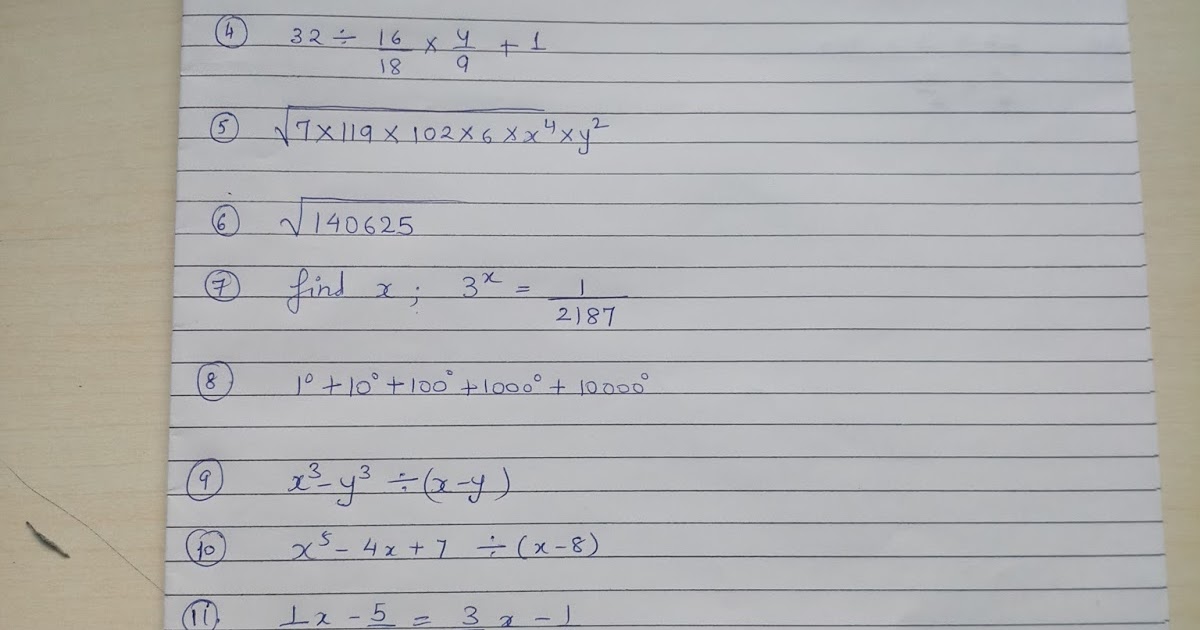 ④ 32 ÷ 16/18 × 4/9 + 1
⑤ √7×119×102×6×x⁴×y²
⑥ √140625
⑦ find x ; 3ˣ = 1/2187
⑧ 1⁰ + 10⁰ + 100⁰ + 1000⁰ + 10000⁰
⑨ x³ - y³ ÷ (x - y)
⑩ x⁵ - 4x + 7 ÷ (x - 8)
⑪ 1x - 5 = 3x - 1